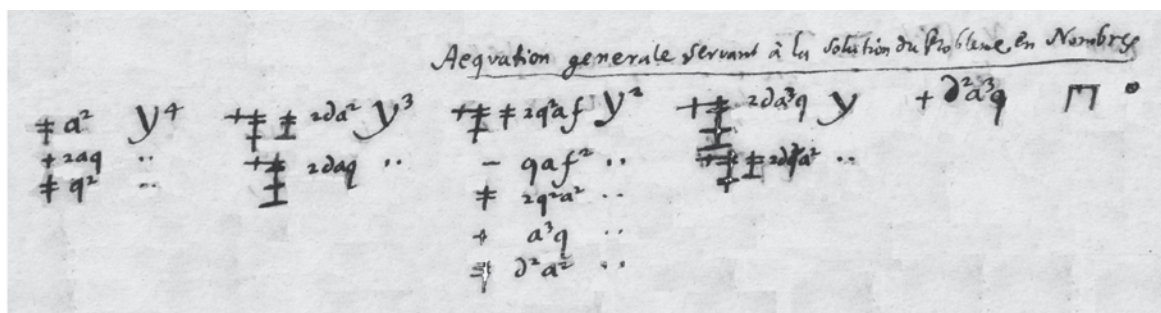 Aequation generale servant à la solution du Probleme en Nombres
ǂ a² y⁴ +ǂ ǂ 2∂a² y³ +ǂ ǂ 2q²af y² +ǂ 2∂a³q y + ∂²a³q ⊓ 0
+ 2aq .. +ǂ 2∂aq .. − qaf² .. +ǂ ǂ 2∂q²a² ..
ǂ q² .. ǂ 2q²a² ..
+ a³q ..
ǂ ∂²a² ..